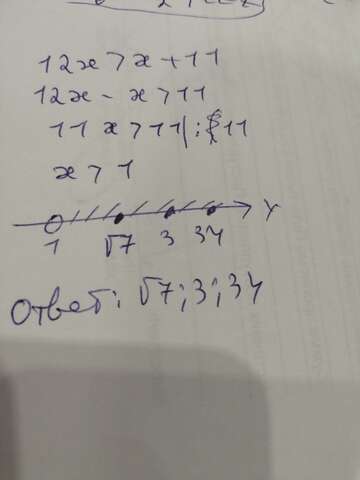 12x > x + 11
12x - x > 11
11x > 11 | : 11
x > 1
1 √7 3 34 x
Ответ: √7; 3; 34